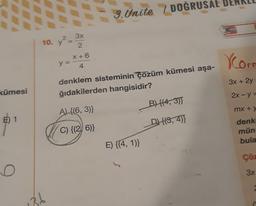 3. Ünite / DOĞRUSAL DENKLE
10. y² = 3x / 2
y = x + 6 / 4
denklem sisteminin çözüm kümesi aşa-
ğıdakilerden hangisidir?
A) {(6, 3)}
B) {(4, 3)}
C) {(2, 6)}
D) {(3, 4)}
E) {(4, 1)}
kümesi
E) 1
3x + 2y
2x – y =
mx + y
denk
mün
bula
Çöz
3x